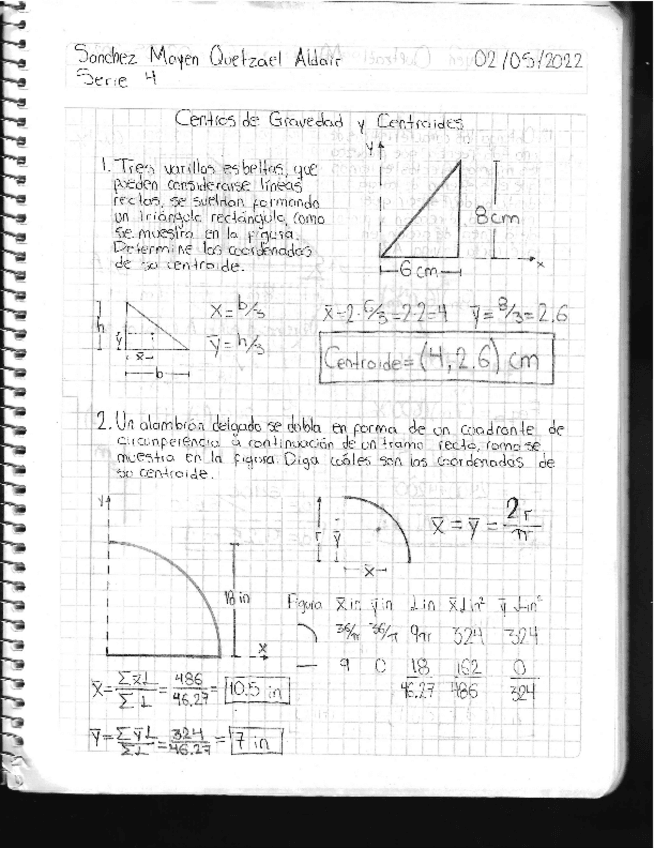 Sanchez Moyen Quetzael Aldair 02/05/2022
Serie 4
Centros de Gravedad y Centroides
1. Tres varillas esbeltas, que
pueden considerarse líneas
rectas, se sueldan formando
un triángulo rectángulo, como
se muestra en la figura.
Determine las coordenadas
de su centroide.
y
8cm
x
6cm
h
ȳ
x̄
b
x = b/3
ȳ = h/3
x̄=2·6/3=2·2=4 ȳ=8/3=2.6
Centroide=(4,2.6) cm
2. Un alambrón delgado se dobla en forma de un cuadrante de
circunferencia a continuación de un tramo recto, como se
muestra en la figura. Diga cuáles son las coordenadas de
su centroide.
y
18 in
x
r
ȳ
x̄
x̄ = ȳ = 2r/π
Figura x̄ in ȳ in L in x̄L in² ȳ L in²
36/π 36/π 9π 324 324
9 0 18 162 0
46.27 486 324
x̄ = Σx̄L/ΣL = 486/46.27 = 10.5 in
ȳ = ΣȳL/ΣL = 324/46.27 = 7 in